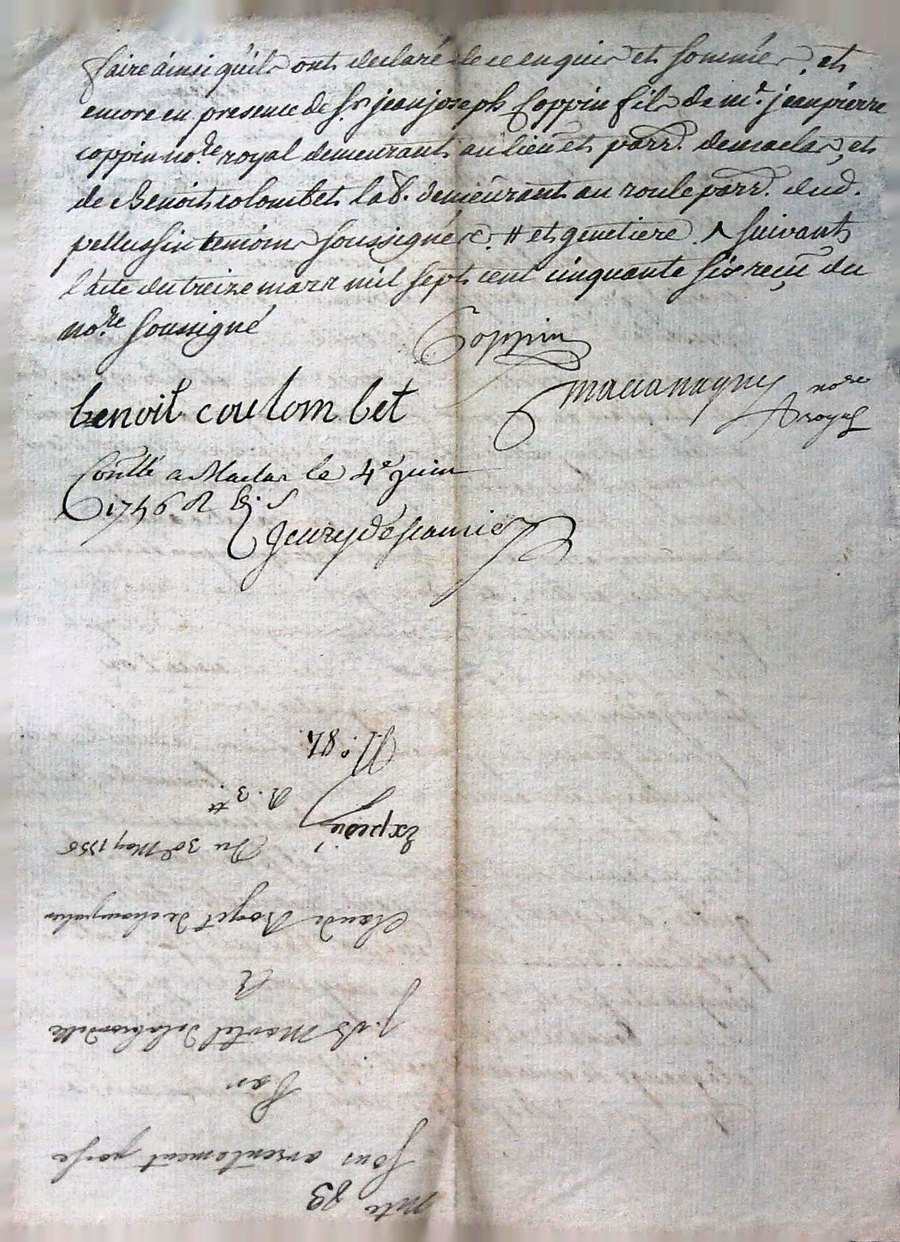 faire ainsi quils ont declaré de ce enquis et sommés, et
encore en presence de Sr. jean joseph Coppin fils de mr. jean pierre
coppin no.re royal demeurant au lieu et parr. de maclas, et
de Benoit colombet lab. demeurant au roule parr. dud.
pellussin temoins soussignés. # et genetiere. ^ suivant
l'acte du treize mars mil sept cent cinquante six reçu du
no.re soussigné
Coppin
benoit coulombet
no.re
royal
Conllé a Maclas le 4e juin
1756 R
nte 89
sous arrentement passé
Par
j. Martel
A
Claude Boyet de
Du 30e May 1756
Expedié
R. 3 tt
N.o 87